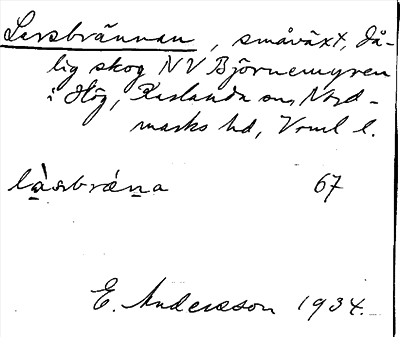 Larsbrännan, småväxt, då-
lig skog NV Björnemyren
i Hög, Karlanda sn, Nord-
marks hd, Vrml l.
làsbrǽna 67
E. Andersson 1934.